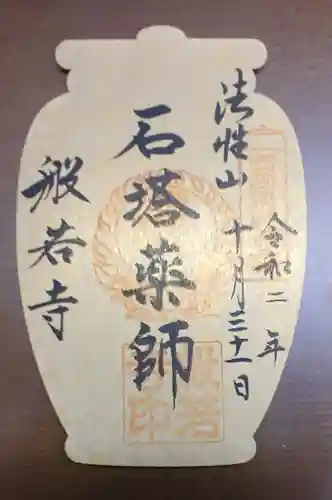 法性山 十月三十一日
令和二年
石塔薬師
般若寺